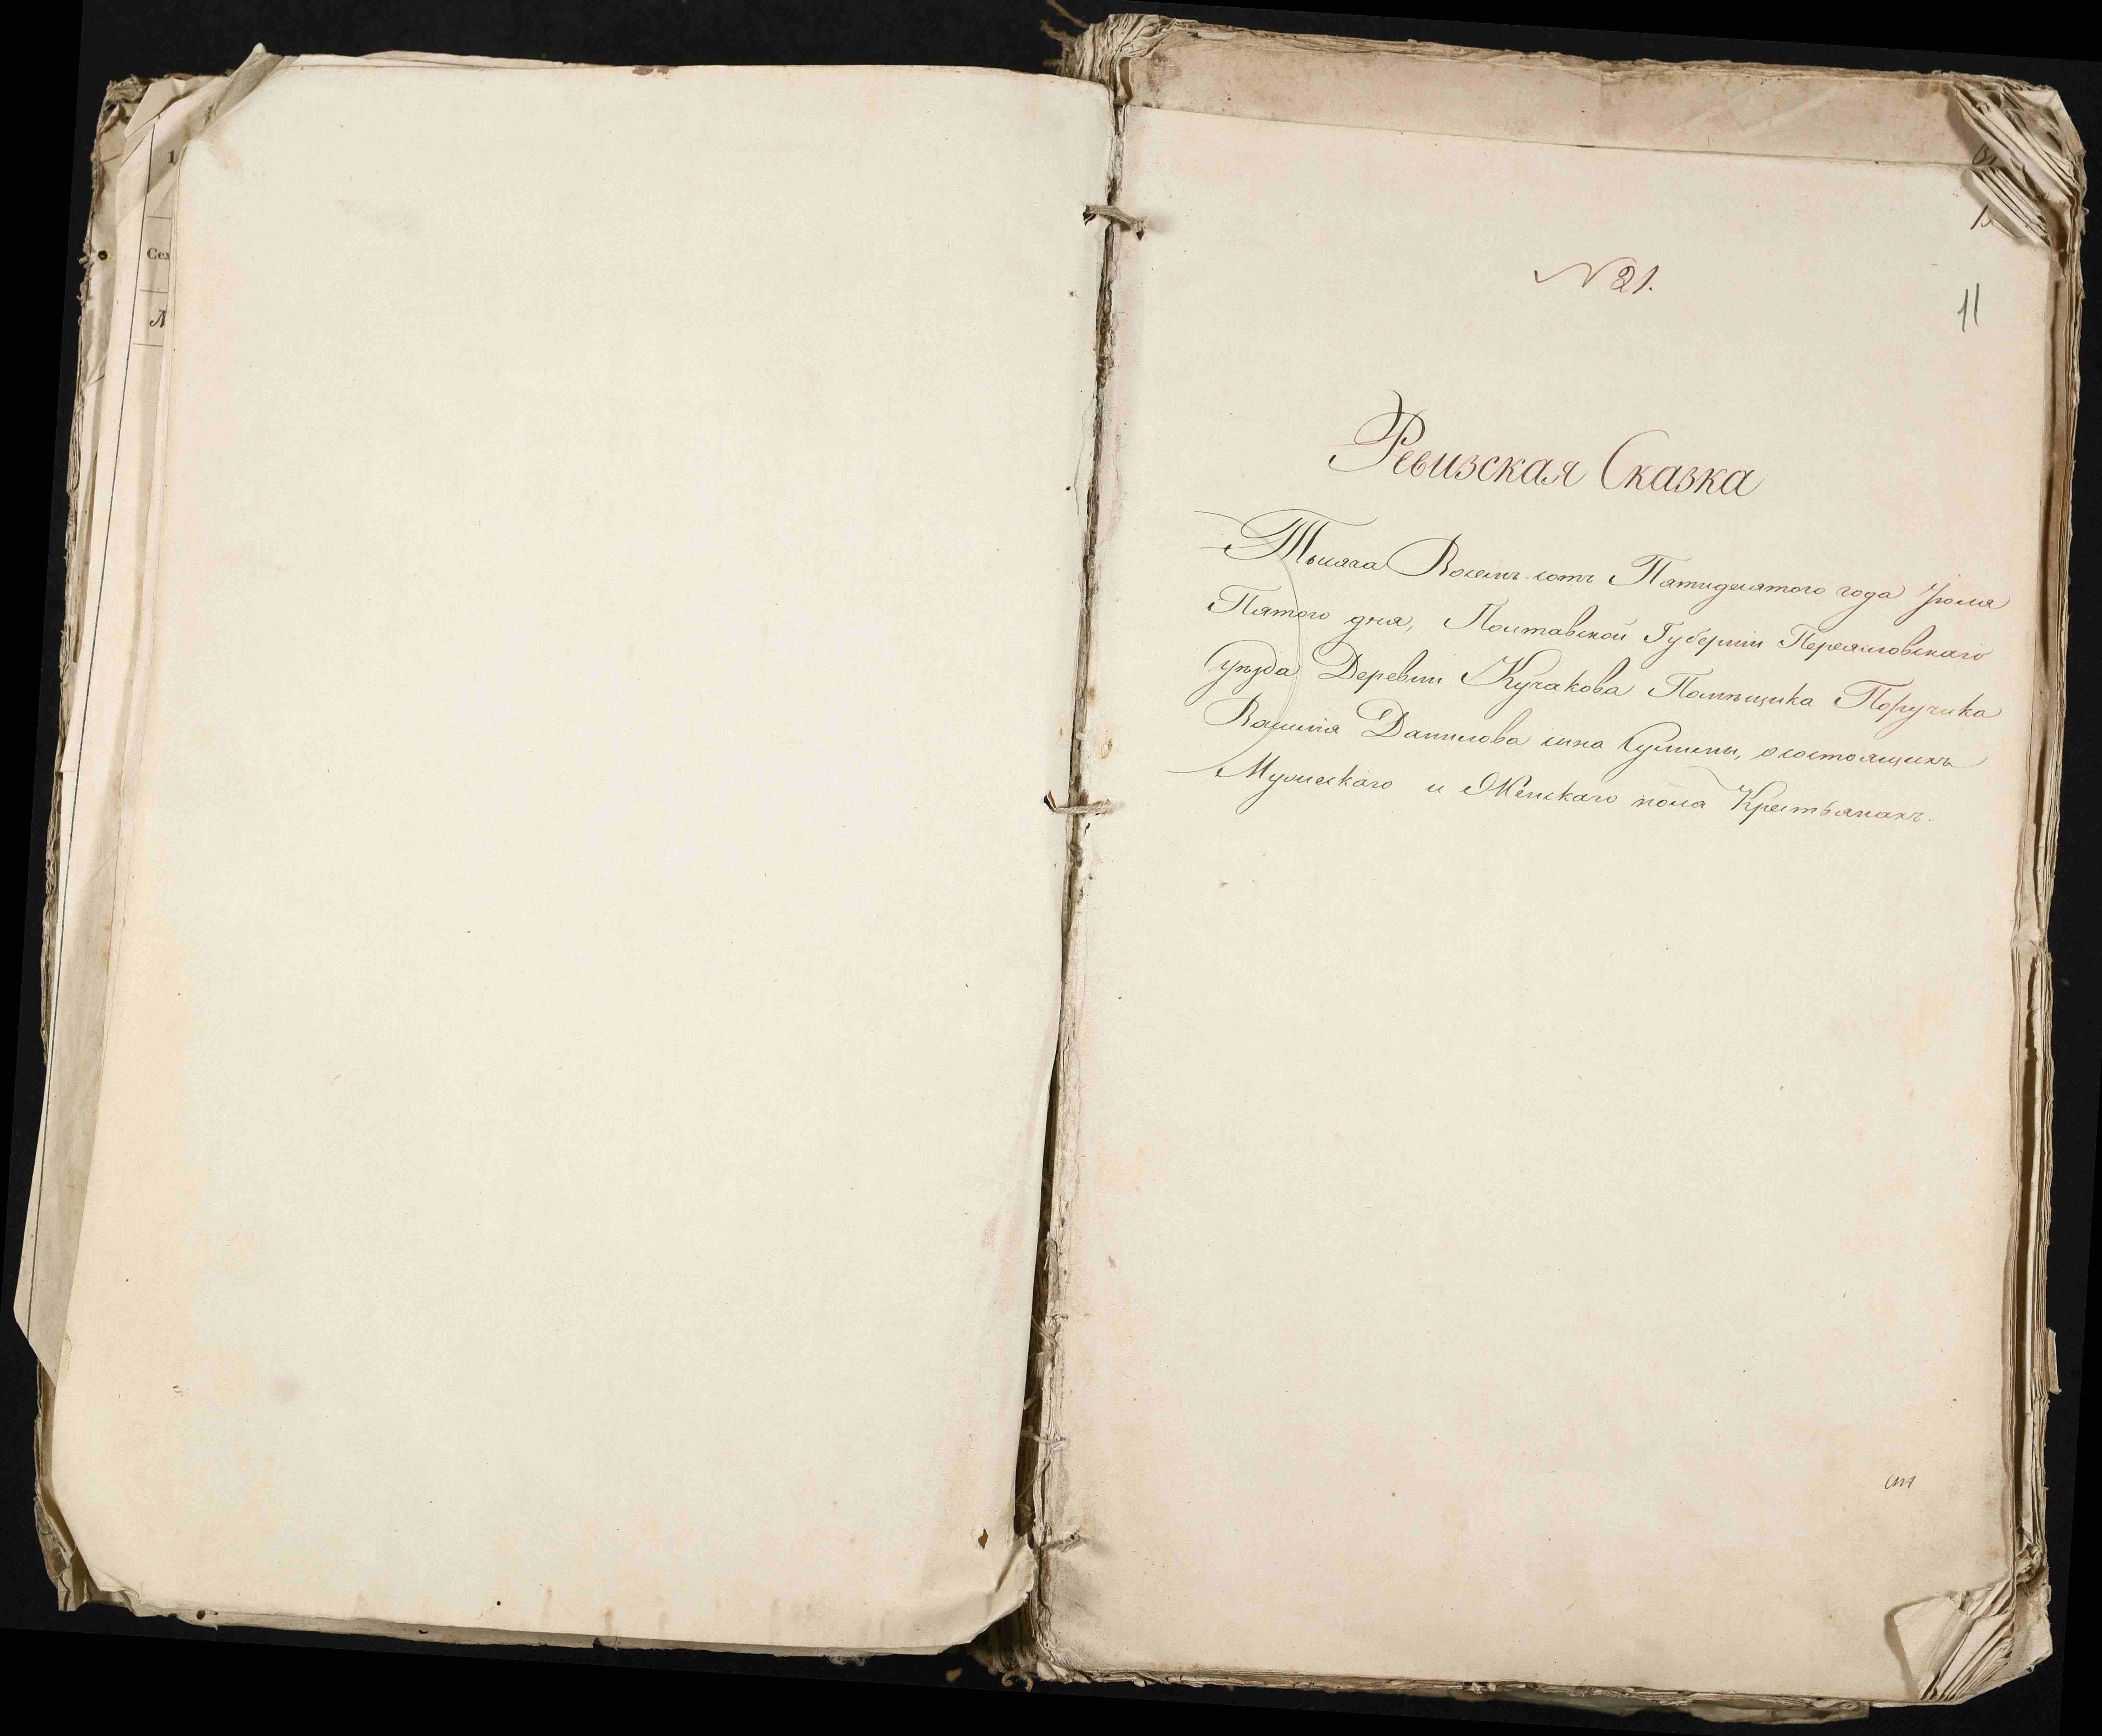 1
Сел
N 21.
11
Ревизская Сказка
Тысяча Восемь-сотъ Пятидесятого года Іюля
Пятого дня, Полтавской Губерніи Переясловскаго
Уѣзда Деревни Кучакова Помѣщика Поручика
Василія Данилова сына Сулимы, о состоящихъ
Мужескаго и Женскаго пола Крестьянахъ.